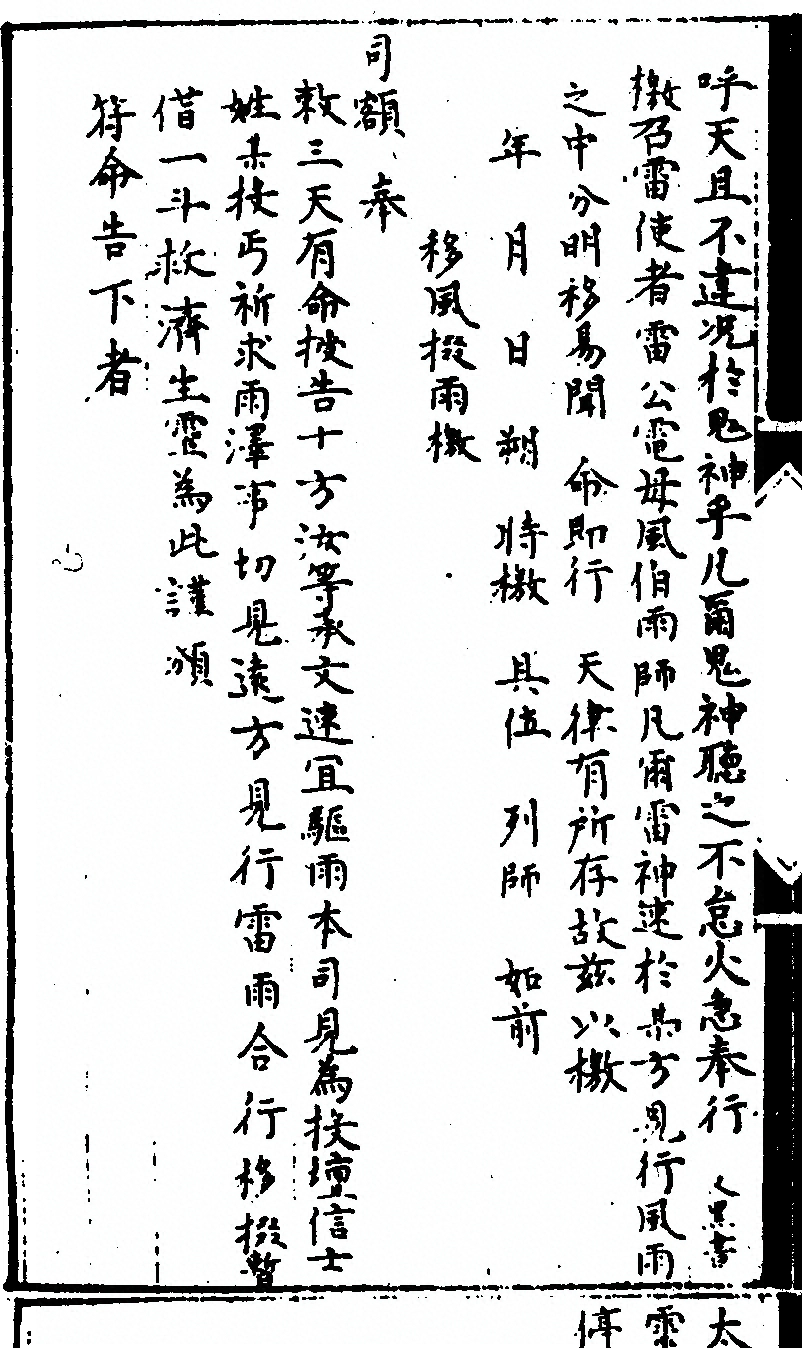 呼天且不違況於鬼神乎凡爾鬼神聽之不怠火急奉行
檄召雷使者雷公電母風伯雨師凡爾雷神速於某方見行風雨
之中分明移易聞　命即行　天律有所存故茲以檄
年　月　日　朔　時檄　具位　列師　如前
移風撥雨檄
司額、奉
敕三天有命披告十方汝等承文速宜驅雨本司見為投壇信士
姓某投丐祈求雨澤事切見遠方見行雷雨合行移撥暫
借一斗救濟生靈為此謹頒
符命告下者
太
霊
停